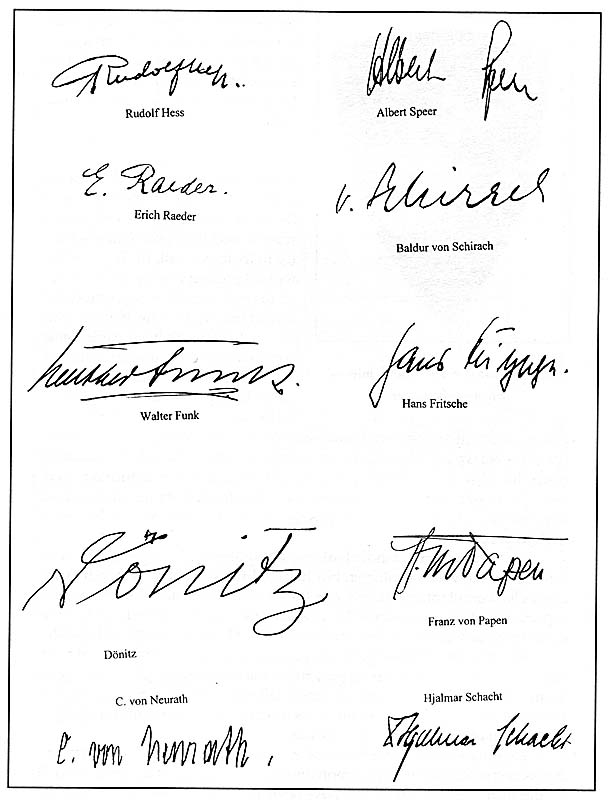 Rudolf Hess.
Albert Speer
Rudolf Hess
Albert Speer
E. Raeder.
v. Schirach
Erich Raeder
Baldur von Schirach
Walther Funk.
Hans Fritzsche.
Walter Funk
Hans Fritsche
Dönitz
F. v. Papen
Franz von Papen
Dönitz
C. von Neurath
Hjalmar Schacht
C. von Neurath,
Hjalmar Schacht